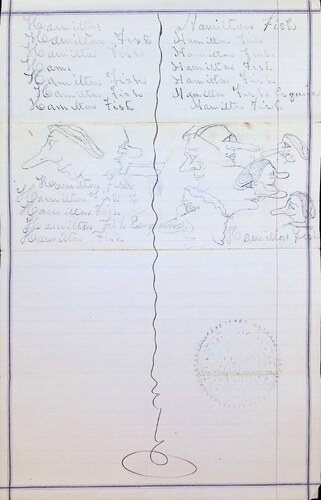 Hamilton
Hamilton Fish
Hamilton Fish
Ham
Hamilton Fish
Hamilton Fish
Hamilton Fish
Hamilton Fish
Hamilton Fish
Hamilton Fish
Hamilton Fish
Hamilton Fish
Hamilton Fish Esquire
Hamilton Fish
Hamilton Fish
Hamilton Fish
Hamilton Fish
Hamilton Fish
Hamilton Fish
Hamilton Fish